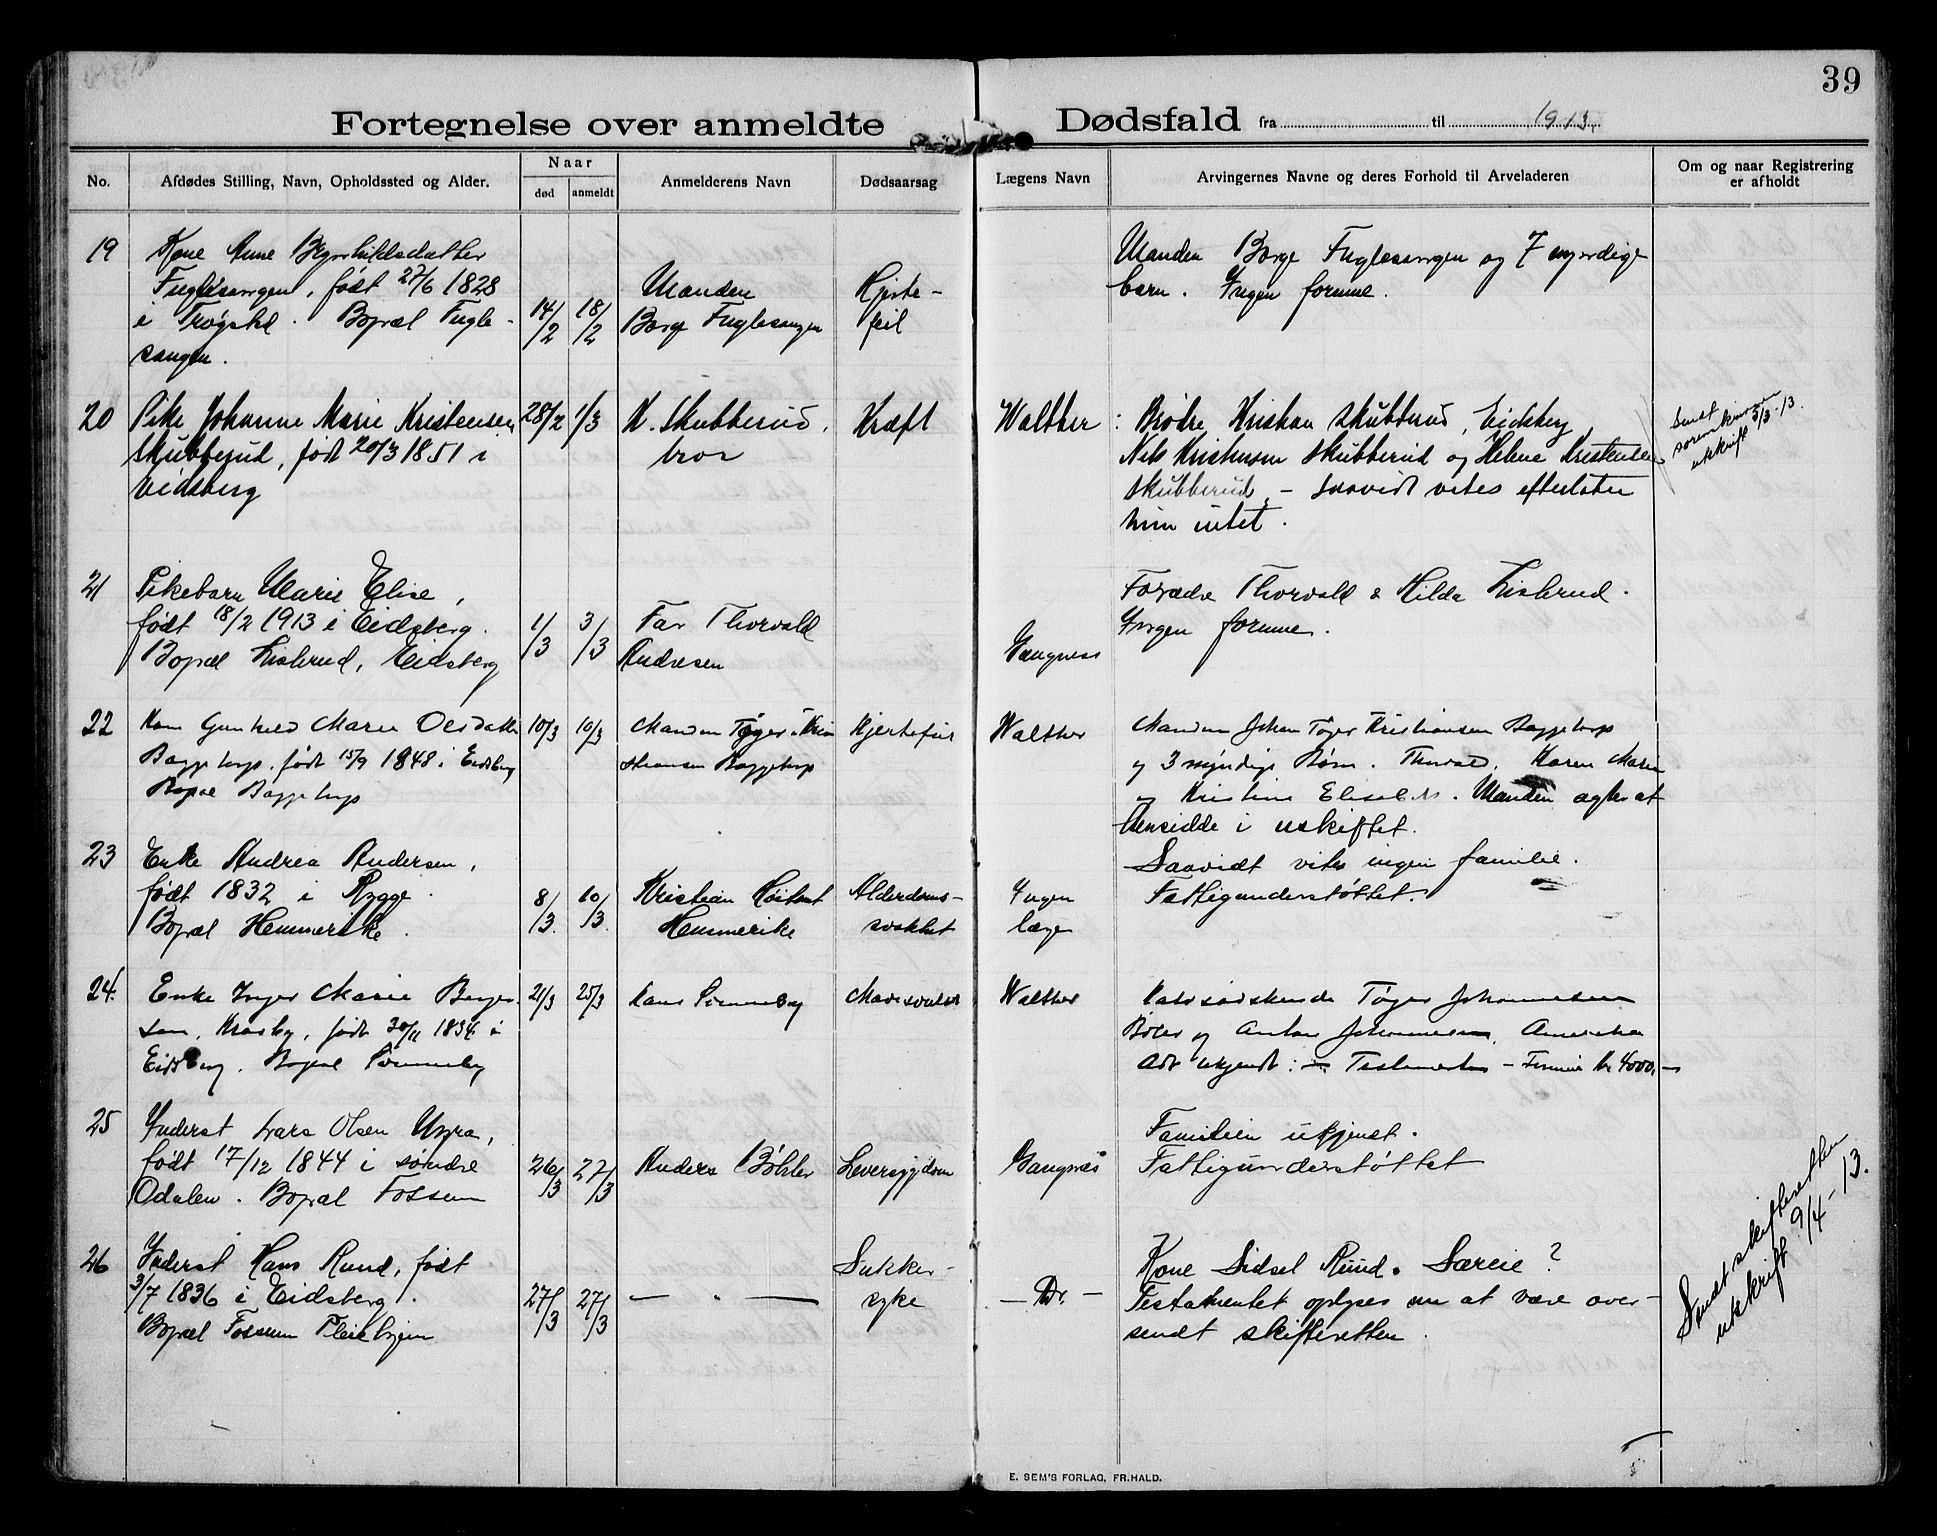 39
Fortegnelse over anmeldte Dødsfald fra til 1913.
No.
Afdødes Stilling, Navn, Opholdssted og Alder.
Naar
død
anmeldt
Anmelderens Navn
Dødsaarsag
Lægens Navn
Arvingernes Navne og deres Forhold til Arveladeren
Om og naar Registrering
er afholdt
19
Kone Anne
Fuglesangen, født 27/6 1828
i Trøgstad. Bopæl Fugle-
sangen.
14/2
18/2
Manden
Borge Fuglesangen
Hjerte-
feil
Manden Borge Fuglesangen og 7 myndige
barn. Ingen formue.
20
Pike Johanne Marie Kristensen
Skubberud, født 20/3 1851 i
Eidsberg
28/2
1/3
K. Skubberud,
bror
Kræft
Walther
: Brødre Kristian Skubberud, Eidsberg,
Nels Kristensen Skubberud og Helene Kristensen
Skubberud. - Saavidt vites efterlater
hun intet.
Sendt
sorenskriveren
utskrift 3/3-13.
21
Pikebarn Marie Elise,
født 18/2 1913 i Eidsberg.
Bopæl Lislerud, Eidsberg
1/3
3/3
Far Thorvald
Andresen
Gangness
Forældre Thorvald & Hilda Lislerud.
Ingen formue.
22
Kone Gunhild Marie Olsdatter
Baggetorp, født 15/9 1848 i Eidsberg
Bopæl Baggetorp
10/3
10/3
Manden Tøger Kris
tiansen Baggetorp
Hjertefeil
Walther
Manden Johan Tøger Kristiansen Baggetorp
og 3 myndige Børn. Thorvald, Karen Marie
og Kristine Elisabeth. Manden agter at
hensidde i uskiftet.
23
Enke Andrea Andersen,
født 1832 i Rygge.
Bopæl Hemmerike.
8/3.
10/3.
Kristian Høitomt
Hemmerike
Alderdoms-
svakhet
Ingen
læge
Saavidt vites ingen familie.
Fattigunderstøttet.
24.
Enke Inger Marie Berger
sen, Kraaby, født 30/11 1834 i
Eidsberg. Bopæl
21/3
25/3
Hans
Walther
Halvsødskende Tøger Johannesen
og Anton Johannesen, Amerika
Adr ukjendt: - Testamente - Formue kr 4000,-
25
Inderst Lars Olsen
født 17/12 1844 i søndre
Odalen. Bopæl Fossum
26/3
27/3
Anders Bøhler
Leversygdom
Gangnes
Familien ukjendt.
Fattigunderstøttet
26
Inderst Hans Ruud, født
3/7 1836 i Eidsberg.
Bopæl Fossum Pleiehjem
27/3
27/3
— " —
Sukker-
syke
— Do. —
Kone Sidsel Ruud. Særeie?
Testamentet oplyses nu at være over-
sendt skifteretten.
Sendt skifteretten
utskrift 9/4-13.
E. SEM'S FORLAG, FR.HALD.